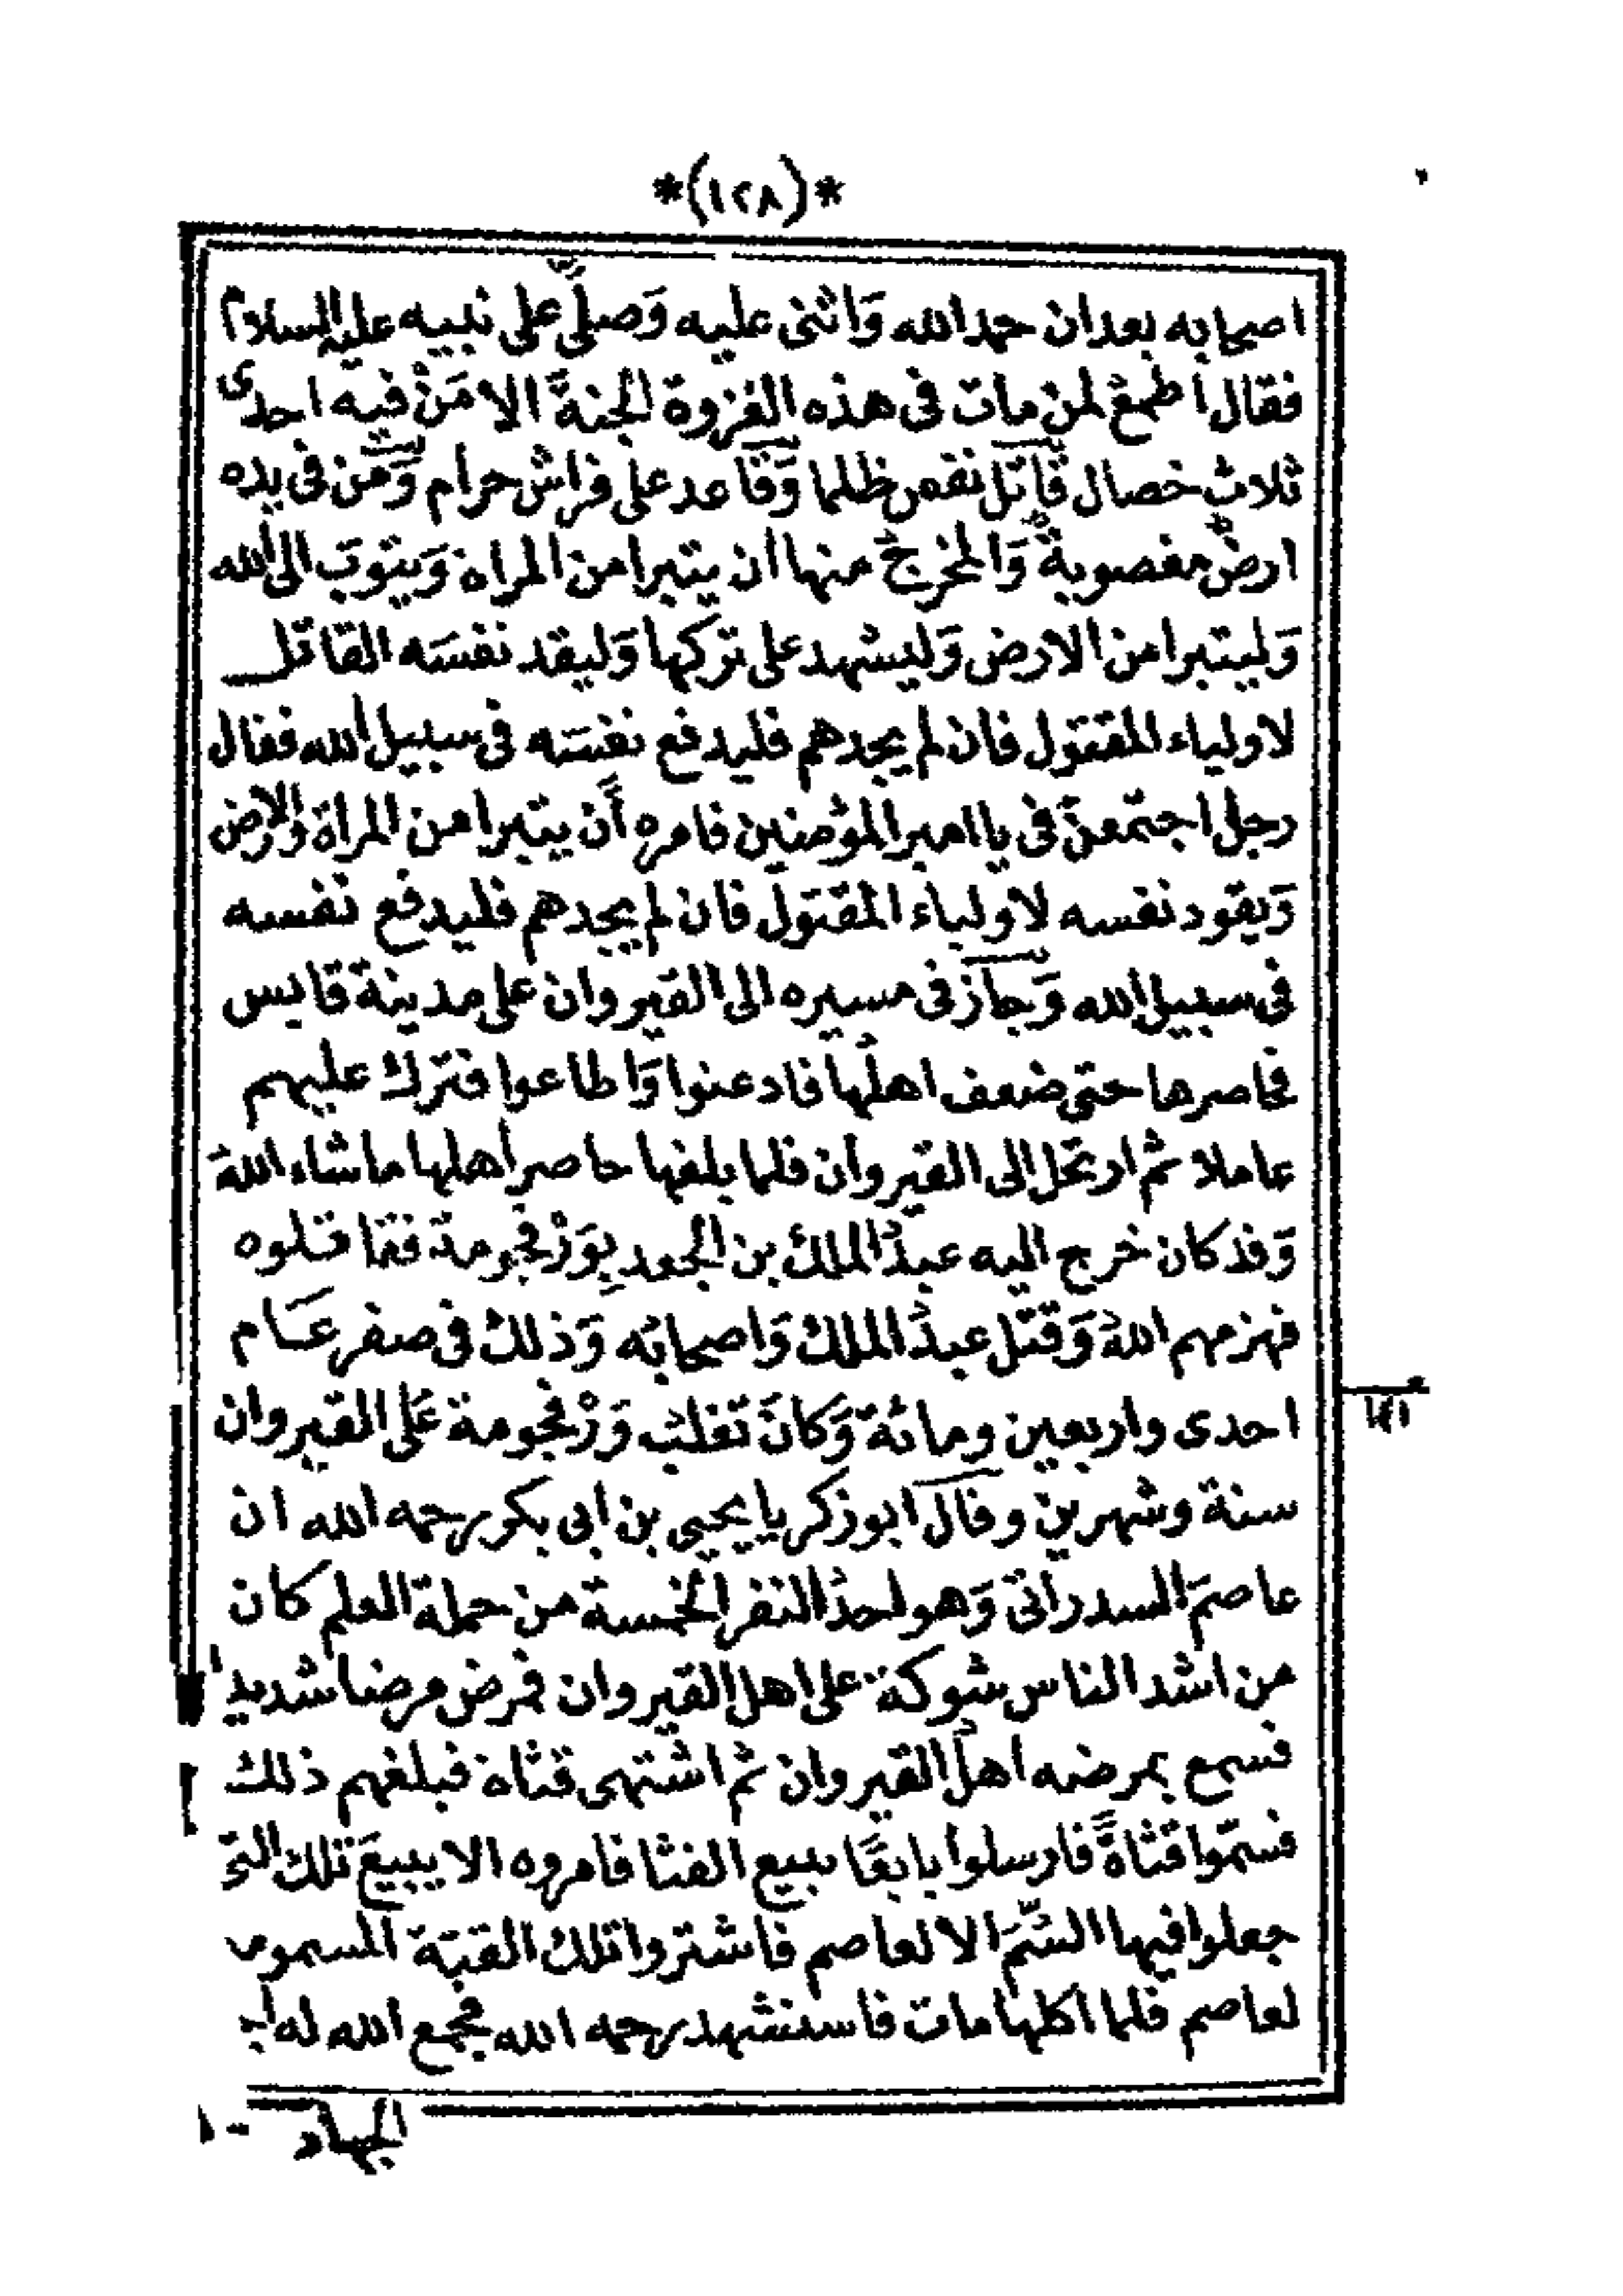 *(١٢٨)*
اصحابه بعد ان حمد الله وَاثنى عليه وَصلَّى على نبيه عليه السلام
فقال اطمعُ لمن مات فى هذه الغزوة الجنةَ الا مَنْ فيه احدى
ثلاث خصال قاتل نفس ظلما وَقاعد على فراش حرام وَمَن فى يده
ارضٌ مغصوبةٌ وَالمخرجُ منها ان يتبرا من المراة وَيتوبَ الى الله
وَليتبرا من الارض وَليشهد على تركها وَليقد نفسَه القاتل
لاولياء المقتول فان لم يجدهم فليدفع نفسَه فى سبيل الله فقال
رجل اجتمعنَ فىّ يا امير المؤمنين فامره أَن يتبرا من المراة والارض
وَيقود نفسه لاولياء المقتول فان لم يجدهم فليدفع نفسه
فى سبيل الله وَجاز فى مسيره الى القيروان على مدينة قابس
فحاصرها حتى ضعف اهلُها فادعنوا وَاطاعوا فترك عليهم
عاملا ثم ارتحل الى القيروان فلما بلغها حاصر أهلها ما شاء اللهُ
وَقد كان خرج اليه عبدُ الملك بن الجعد بِوَرْفجومة فقاتلوه
فهزمهم اللهُ وَقتل عبدُ الملك وَاصحابُه وَذلك فى صفر عَام
احدى واربعين ومائة وَكانَ تغلب وَرْفجومة عَلى القيروان
سنة وشهرين وقال ابو زكريا يحيى بن ابى بكر رحمه الله ان
عاصمَ السدراتى وَهو احدُ النفر الخمسة من حملة العلم كان
من اشد الناس شوكة على اهل القيروان فمرض مرضا شديدا
فسمع بمرضه اهلُ القيروان ثم اشتهى قثاة فبلغهم ذلك
فسمّوا قثاةً فارسلوا بايعًا يبيع القثا فامروه الا يبيعَ تلك التى
جعلوا فيها السُّمَ الا لعاصم فاشتروا تلك القثة
لعاصم فلما اكلها مات فاستشهد رحمه الله فجمع الله له
الجهاد
١٤١